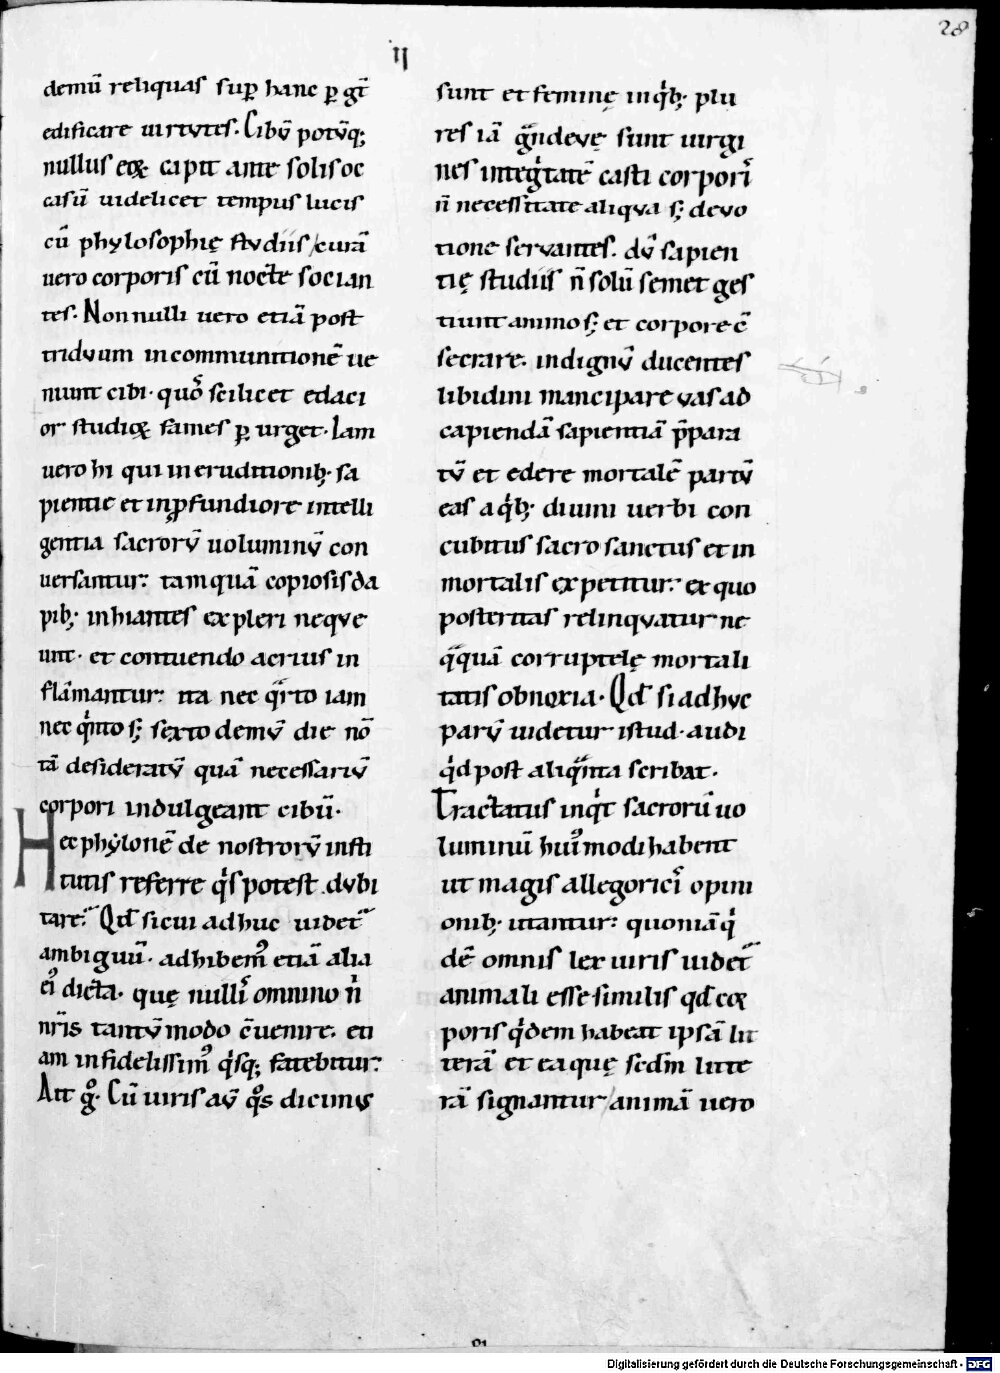 28
II
demū reliquas suꝑ hanc ꝑ gt̄
edificare uirtutes. Cibū potūq;
nullus eoꝝ capit ante solis oc
casū uidelicet tempus lucis
cū phylosophię studiis / curā
uero corporis cū nocte socian
tes. Non nulli uero etiā post
triduum incommunitionē ue
niunt cibi. quos̄ scilicet edaci
or studioꝝ fames ꝑ urget. Iam
uero hi qui in eruditionib; sa
pientie et in ꝓfundiore intelli
gentia sacrorū uoluminū con
uersantur: tam quā copiosis da
pib; inhiantes expleri neque
unt. et contuendo acrius in
flāmantur: ita nec qͣrto iam
nec qͥnto s; sexto demū die nō
tā desideratū quā necessariū
corpori indulgeant cibū.
Hec phylonē de nostrorū insti
tutis referre qͥs potest dubi
tare. Qd̄ si cui adhuc uidet᷑
ambiguū. adhibemꝰ etiā alia
eiꝰ dicta. quę nulli omnino ñ
nr̄is tantūmodo c̄uenire. eti
am infidelissimꝰ qͥsq; fatebitur:
Ait gͦ. Cū uiris aū qͦs dicimus
sunt et feminę in qͥb; plu
res iā gͣndeuę sunt uirgi
nes integͥtatē casti corporis
n̄ necessitate aliqua s; deuo
tione seruantes. dū sapien
tię studiis n̄ solū semet ges
tiunt animo s; et corpore c̄
secrare. indignū ducentes
libidini mancipare uas ad
capiendā sapientiā p̄para
tū et edere mortalē partū
eas a qͥb; diuini uerbi con
cubitus sacro sanctus et in
mortalis expetitur: ex quo
posteritas relinquatur ne
qͣquā corruptelę mortali
tatis obnoxia. Qd̄ si adhuc
parū uidetur istud. audi
qͥd post aliqͣnta scribat.
Tractatus inqͥt sacrorū uo
luminū huiꝰmodi habent
ut magis allegoricis opini
onib; utantur: quoniā qͥ
dē omnis lex uiris uidet᷑
animali esse similis qd̄ coꝝ
poris qͥdem habeat ipsā lit
terā et ea quę sc̄dm litte
rā signantur / animā uero
Digitalisierung gefördert durch die Deutsche Forschungsgemeinschaft - DFG